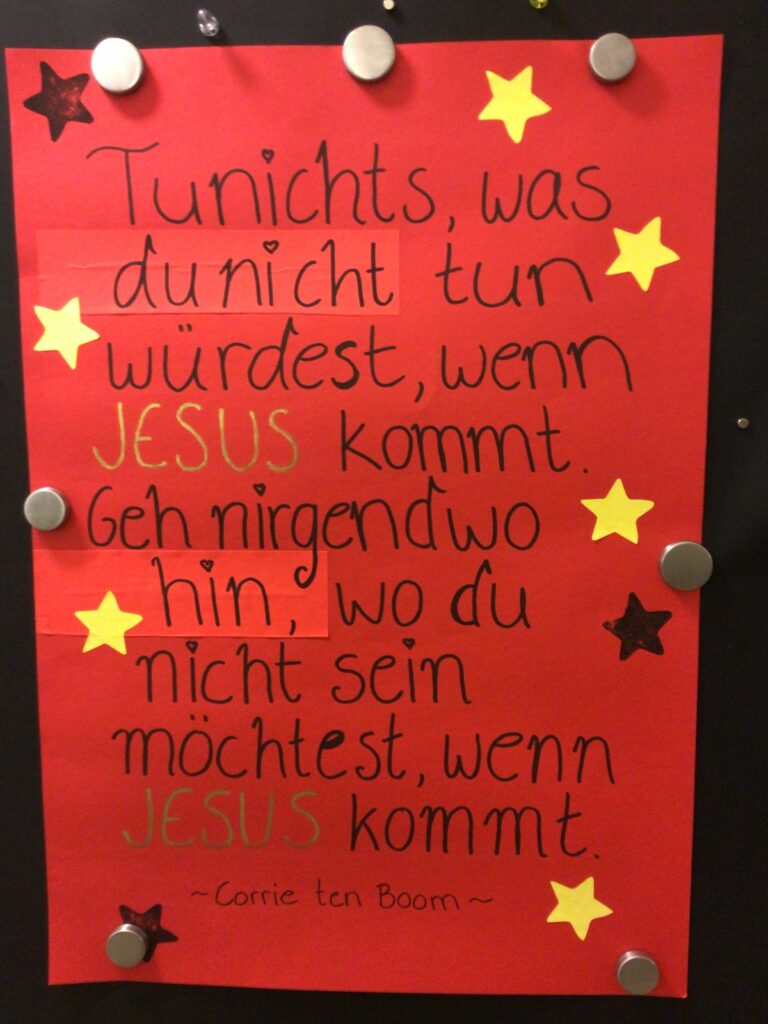 Tu nichts, was
du nicht tun
würdest, wenn
JESUS kommt.
Geh nirgendwo
hin, wo du
nicht sein
möchtest, wenn
JESUS kommt.
~Corrie ten Boom~